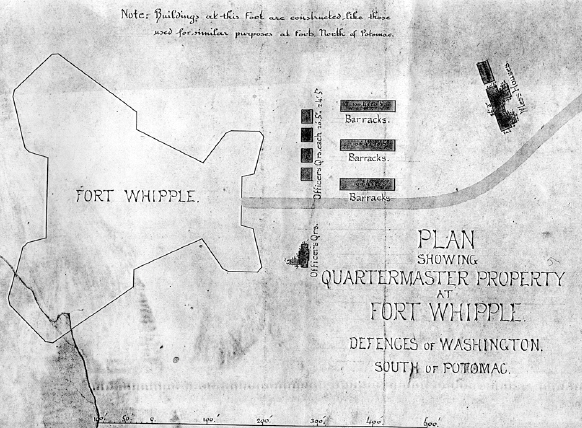 Note: Buildings at this Fort are constructed like those
used for similar purposes at Forts North of Potomac.
FORT WHIPPLE.
Officers Qrs. each 20.5 x 24.5
Barracks.
Barracks.
Barracks
Mess Houses
Officers Qrs.
PLAN
SHOWING
QUARTERMASTER PROPERTY
AT
FORT WHIPPLE.
DEFENCES OF WASHINGTON,
SOUTH OF POTOMAC.
100. 50. 0. 100.' 200.' 300.' 400.' 500.'